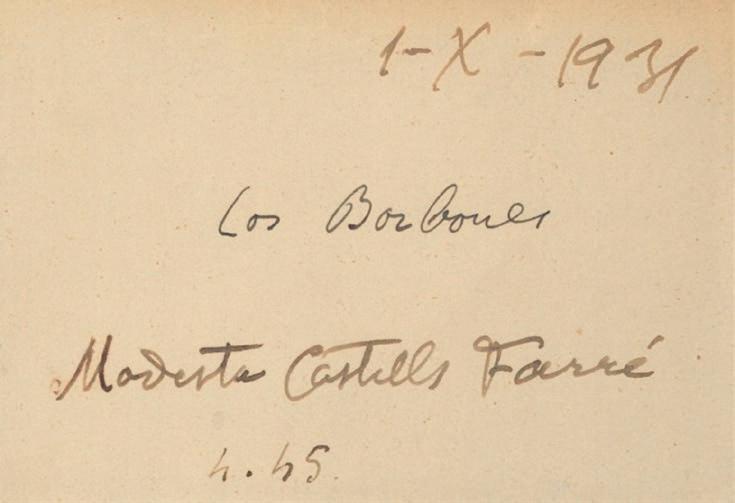 1-X-1931
Los Borbones
Modesta Castells Farré
4.45.